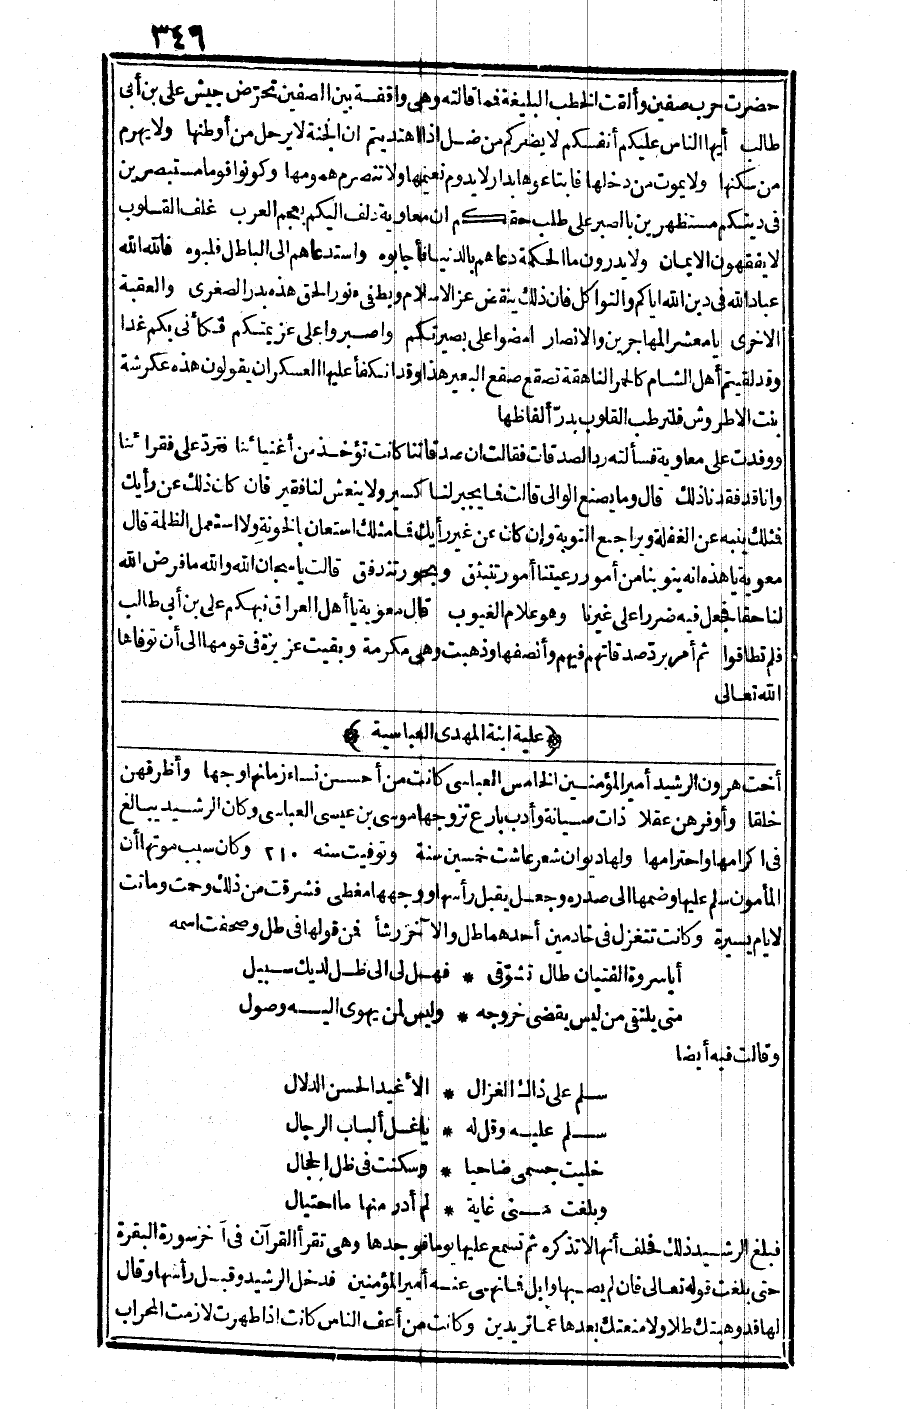 ٣٤٩
حضرت حرب صفين وألقت الخطب البليغة فما قالته وهي واقفة بين الصفين تحرّض جيش علي بن أبي
طالب أيها الناس عليكم أنفسكم لا يضركم من ضل اذا اهتديتم ان الجنة لا يرحل من أوطنها ولا يهرم
من سكنها ولا يموت من دخلها فابتاعوها بدار لا يدوم نعيمها ولا تنصرم همومها وكونوا قوما مستبصرين
فى دينكم مستظهرين بالصبر على طلب حقكم ان معاوية دلف اليكم بعجم العرب غلف القلوب
لا يفقهون الايمان ولا يدرون ما الحكمة دعاهم بالدنيا فأجابوه واستدعاهم الى الباطل فلبوه فالله الله
عباد الله فى دين الله اياكم والتواكل فان ذلك ينقض عز الاسلام ويطفئ نور الحق هذه بدر الصغرى والعقبة
الاخرى يا معشر المهاجرين والانصار امضوا على بصيرتكم واصبروا على عزيمتكم فكأنى بكم غدا
وقد لقيتم أهل الشام كالحمر الناهقة تصقع صقع البعير هذا وقد انكفأ عليها العسكران يقولون هذه عكرشة
بنت الاطروش فلترطب القلوب بدرّ ألفاظها
ووفدت على معاوية فسألته رد الصدقات فقالت ان صدقاتنا كانت تؤخذ من أغنيائنا فترد على فقرائنا
وانا قد فقدنا ذلك قال وما يصنع الوالى قالت فما يجبر لنا كسير ولا ينعش لنا فقير فان كان ذلك عن رأيك
فمثلك ينبه عن الغفلة ويراجع التوبة وإن كان عن غير رأيك فما مثلك استعان بالخونة ولا استعمل الظلمة قال
معوية يا هذه انه ينوبنا من أمور رعيتنا أمور تنبثق وبحور تندفق قالت يا سبحان الله والله ما فرض الله
لنا حقا فجعل فيه ضررا على غيرنا وهو علام الغيوب قال معوية يا أهل العراق نبهكم علي بن أبي طالب
فلم تطاقوا ثم أمر بردّ صدقاتهم فيهم وأنصفها وذهبت وهي مكرمة وبقيت عزيزة فى قومها الى أن توفاها
الله تعالى
﴿علية ابنة المهدى العباسية﴾
أخت هرون الرشيد أمير المؤمنين الخامس العباسى كانت من أحسن نساء زمانها وجها وأظرفهن
خلقا وأوفرهن عقلا ذات صيانة وأدب بارع تزوجها موسى بن عيسى العباسى وكان الرشيد يبالغ
فى اكرامها واحترامها ولها ديوان شعر عاشت خمسين سنة وتوفيت سنه ٢١٠ وكان سبب موتها أن
المأمون سلم عليها وضمها الى صدره وجعل يقبل رأسها ووجهها مغطى فشرقت من ذلك وحمت وماتت
لايام يسيرة وكانت تتغزل فى خادمين أحدهما طل والآخر رشأ فمن قولها فى طل وصحفت اسمه
أيا سروة الفتيان طال تشوّقى * فهل لى الى ظل لديك سبيل
متى يلتقى من ليس يقضى خروجه * وليس لمن يهوى اليه وصول
وقالت فيه أيضا
سلم على ذاك الغزال * الأغيد الحسن الدلال
سلم عليه وقل له * يا غل ألباب الرجال
خليت جسمى ضاحيا * وسكنت فى ظل الحجال
وبلغت منى غاية * لم أدر منها ما احتيال
فبلغ الرشيد ذلك فحلف أنها لا تذكره ثم تسمع عليها يوما فوجدها وهي تقرأ القرآن فى آخر سورة البقرة
حتى بلغت قوله تعالى فان لم يصبها وابل فما نهى عنه أمير المؤمنين فدخل الرشيد وقبل رأسها وقال
لها قد وهبتك طلا ولا منعتك بعدها عما تريدين وكانت من أعف الناس كانت اذا طهرت لازمت المحراب